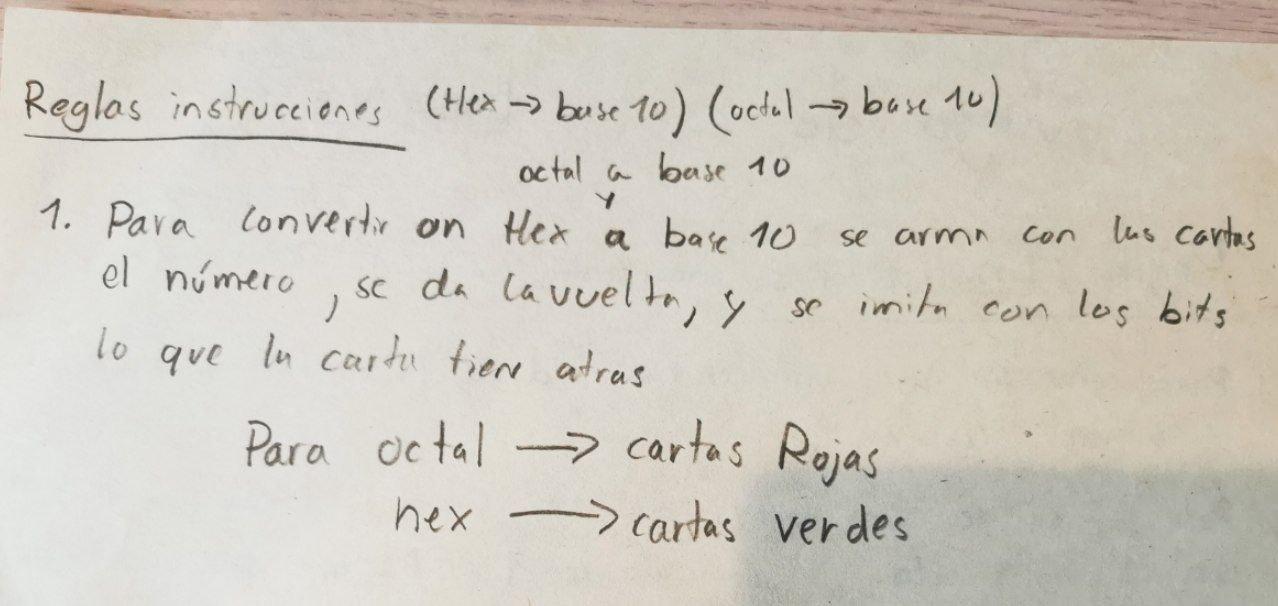 Reglas instrucciones (Hex → base 10) (octal → base 10)
octal a base 10
y
1. Para convertir on Hex a base 10 se arma con las cartas
el número, se da la vuelta, y se imita con los bits
lo que la carta tiene atras
Para octal → cartas Rojas
hex → cartas verdes